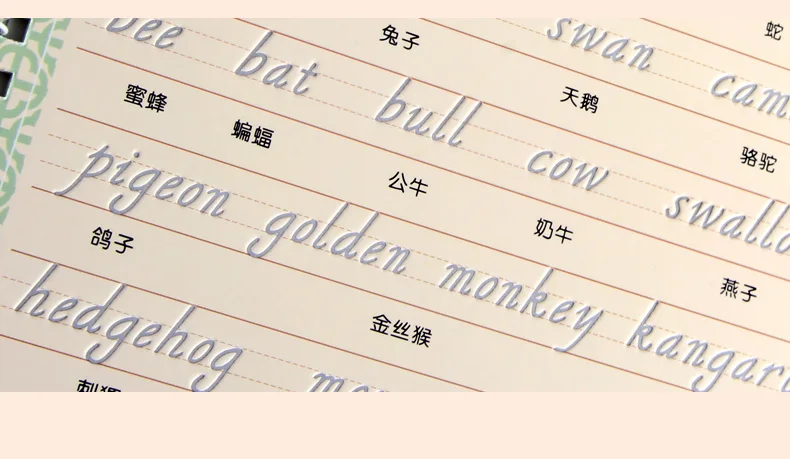 蛇
swan cam
兔子 天鹅 骆驼
bee bat bull cow swallo
蜜蜂 蝙蝠 公牛 奶牛 燕子
pigeon golden monkey kangar
鸽子 金丝猴
hedgehog